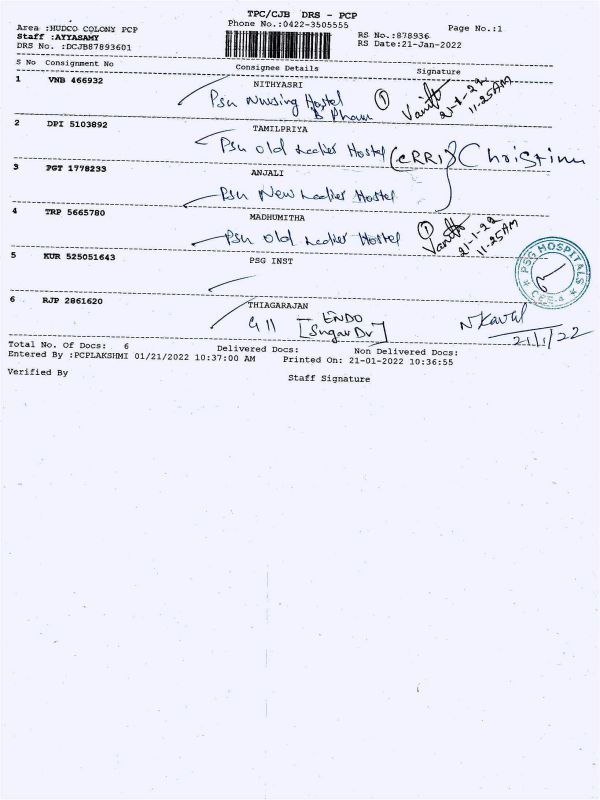 TPC/CJB DRS - PCP
Phone No.:0422-3505555
Page No.:1
Area :HUDCO COLONY PCP
Staff :AYYASAMY
DRS No. :DCJB87893601
RS No.:878936
RS Date:21-Jan-2022
S No Consignment No Consignee Details Signature
1 VNB 466932 NITHYASRI
Psg Nursing Hostel
B Pharm
① 21-1-22
11-25AM
2 DPI 5103892 TAMILPRIYA
Psg old Ladies Hostel (CRRI)
3 PGT 1778233 ANJALI
Psg New Ladies Hostel
4 TRP 5665780 MADHUMITHA
Psg old Ladies Hostel
① 21-1-22
11-25AM
5 KUR 525051643 PSG INST
PSG HOSPITALS
6 RJP 2861620 THIAGARAJAN
G 11 [ENDO
Sugar Dr]
21/1/22
Total No. Of Docs: 6 Delivered Docs: Non Delivered Docs:
Entered By :PCPLAKSHMI 01/21/2022 10:37:00 AM Printed On: 21-01-2022 10:36:55
Verified By
Staff Signature